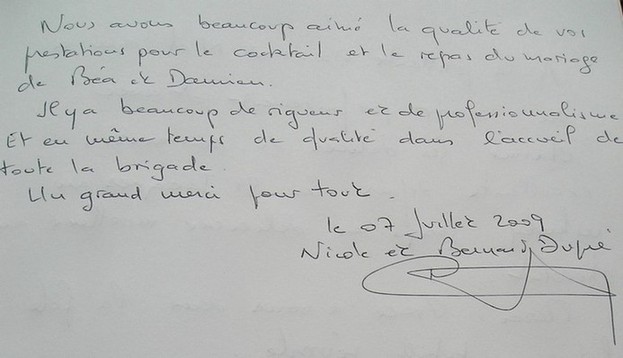 Nous avons beaucoup aimé la qualité de vos
prestations pour le cocktail et le repas du mariage
de Béa et Damien.
Il y a beaucoup de rigueur et de professionnalisme
Et en même temps de qualité dans l'accueil de
toute la brigade.
Un grand merci pour tout.
le 07 Juillet 2009
Nicole et Bernard Dupré